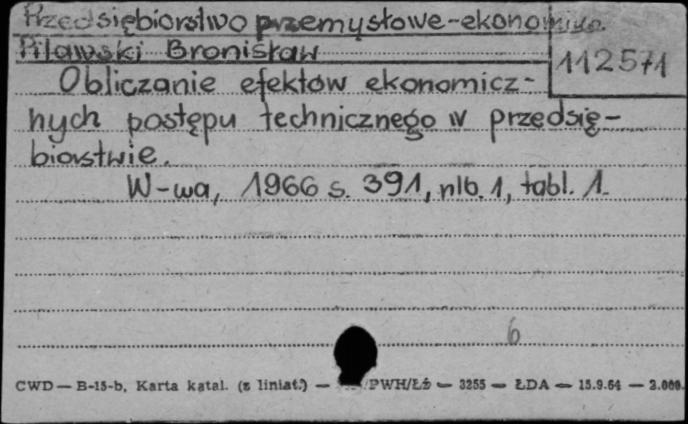 Przedsiębiorstwo przemysłowe-ekonomika
Pilawski Bronisław
112571
Obliczanie efektów ekonomicz-
nych postępu technicznego w przedsię-
biorstwie.
W-wa, 1966 s. 391, nlb. 1, tabl. 1.
6
CWD — B-15-b, Karta katal. (z liniat.) — PWH/Łż — 3255 — ŁDA — 15.9.64 — 2.000.